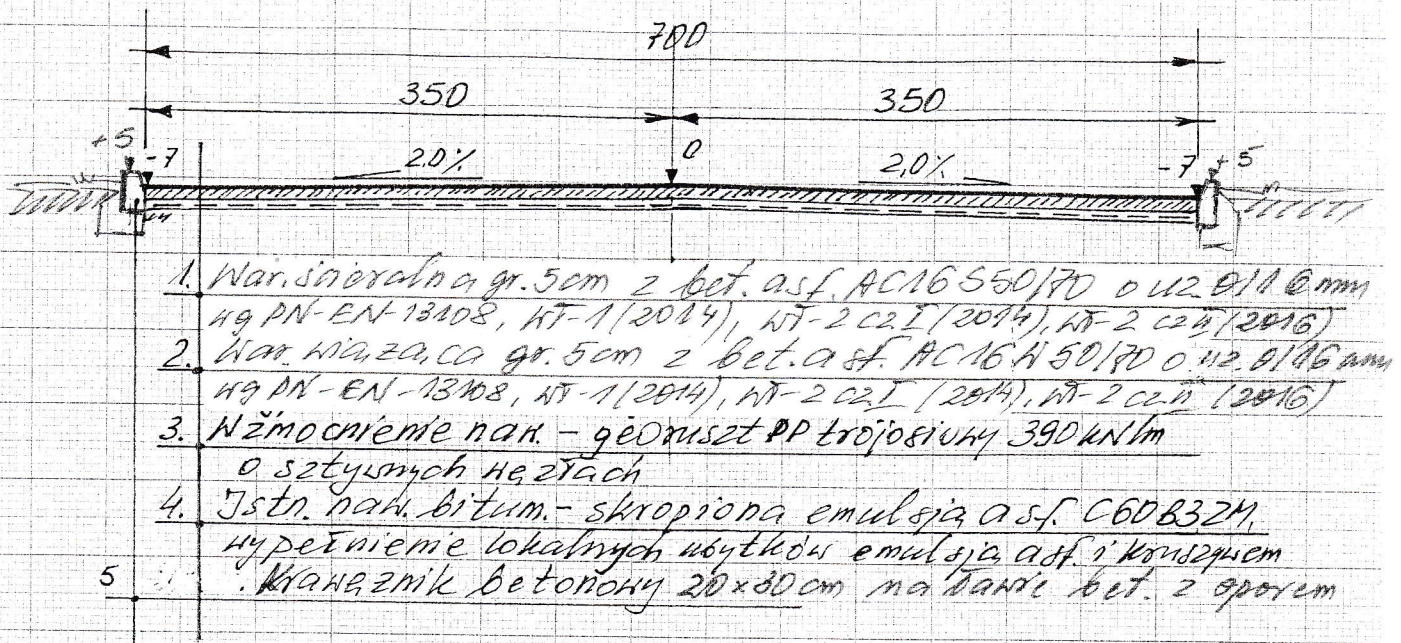 700
350 350
+5 -7 2.0% 0 2,0% -7 +5
1. War. ścieralna gr. 5cm z bet. asf. AC16 S50/70 o uz. 0/16 mm
wg PN-EN-13108, WT-1 (2014), WT-2 cz I (2014), WT-2 cz II (2016)
2. War. wiążąca gr. 5cm z bet. asf. AC16 W 50/70 o uz. 0/16 mm
wg PN-EN-13108, WT-1 (2014), WT-2 cz I (2014), WT-2 cz II (2016)
3. Wzmocnienie naw. - georuszt PP trójosiowy 390 kN/m
o sztywnych węzłach
4. Istn. naw. bitum. - skropiona emulsją asf. C60B3ZM,
wypełnienie lokalnych ubytków emulsją asf. i kruszywem
5 Krawężnik betonowy 20x30 cm na ławie bet. z oporem